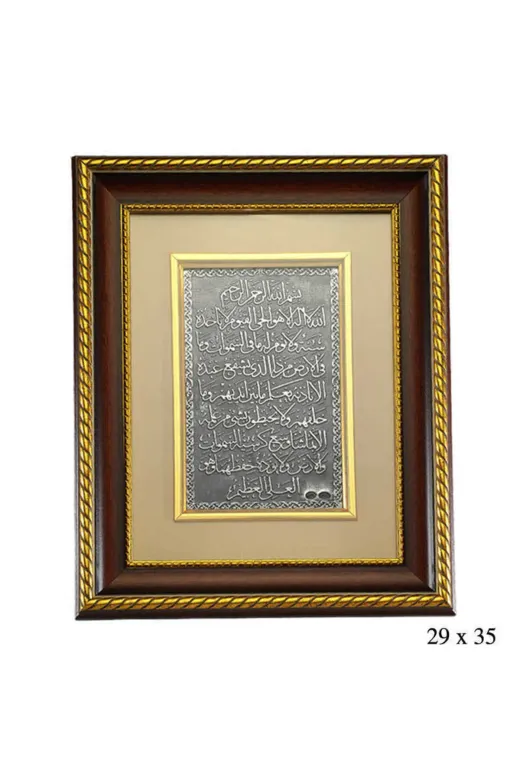 بسم الله الرحمن الرحيم
الله لا اله الا هو الحي القيوم لا تاخذه
سنة ولا نوم له ما في السموات وما
في الارض من ذا الذي يشفع عنده
الا باذنه يعلم ما بين ايديهم وما
خلفهم ولا يحيطون بشئ من علمه
الا بما شاء وسع كرسيه السموات
والارض ولا يؤده حفظهما وهو
العلي العظيم
29 x 35